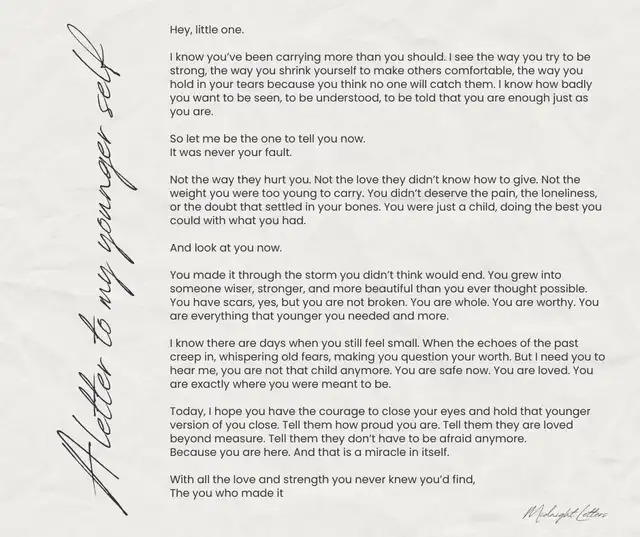 A letter to my younger self
Hey, little one.
I know you’ve been carrying more than you should. I see the way you try to be
strong, the way you shrink yourself to make others comfortable, the way you
hold in your tears because you think no one will catch them. I know how badly
you want to be seen, to be understood, to be told that you are enough just as
you are.
So let me be the one to tell you now.
It was never your fault.
Not the way they hurt you. Not the love they didn’t know how to give. Not the
weight you were too young to carry. You didn’t deserve the pain, the loneliness,
or the doubt that settled in your bones. You were just a child, doing the best you
could with what you had.
And look at you now.
You made it through the storm you didn’t think would end. You grew into
someone wiser, stronger, and more beautiful than you ever thought possible.
You have scars, yes, but you are not broken. You are whole. You are worthy. You
are everything that younger you needed and more.
I know there are days when you still feel small. When the echoes of the past
creep in, whispering old fears, making you question your worth. But I need you to
hear me, you are not that child anymore. You are safe now. You are loved. You
are exactly where you were meant to be.
Today, I hope you have the courage to close your eyes and hold that younger
version of you close. Tell them how proud you are. Tell them they are loved
beyond measure. Tell them they don’t have to be afraid anymore.
Because you are here. And that is a miracle in itself.
With all the love and strength you never knew you’d find,
The you who made it
Midnight Letters